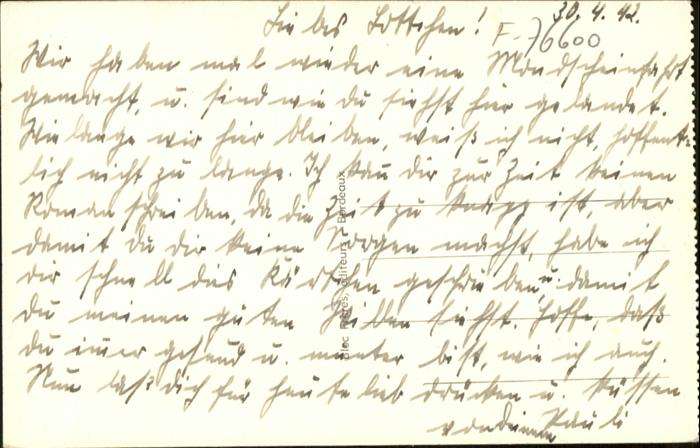 30. 4. 42.
Liebes Lottchen!
F-76600
Wir haben mal wieder eine Mondscheinfahrt
gemacht, u. sind wie du siehst hier gelandet.
Wie lange wir hier bleiben, weiß ich nicht, hoffent-
lich nicht zu lange. Ich kan dir zur Zeit keinen
Roman schreiben, da die Zeit zu knapp ist, aber
damit du dir keine Sorgen machst, habe ich
dir schnell das Kärtchen geschrieben u. damit
du meinen guten Willen siehst. Hoffe, daß
du imer gesund u. munter bist, wie ich auch.
Nun laß dich für heute lieb drücken u. küssen
von deinem Pauli
Frères, éditeurs, Bordeaux